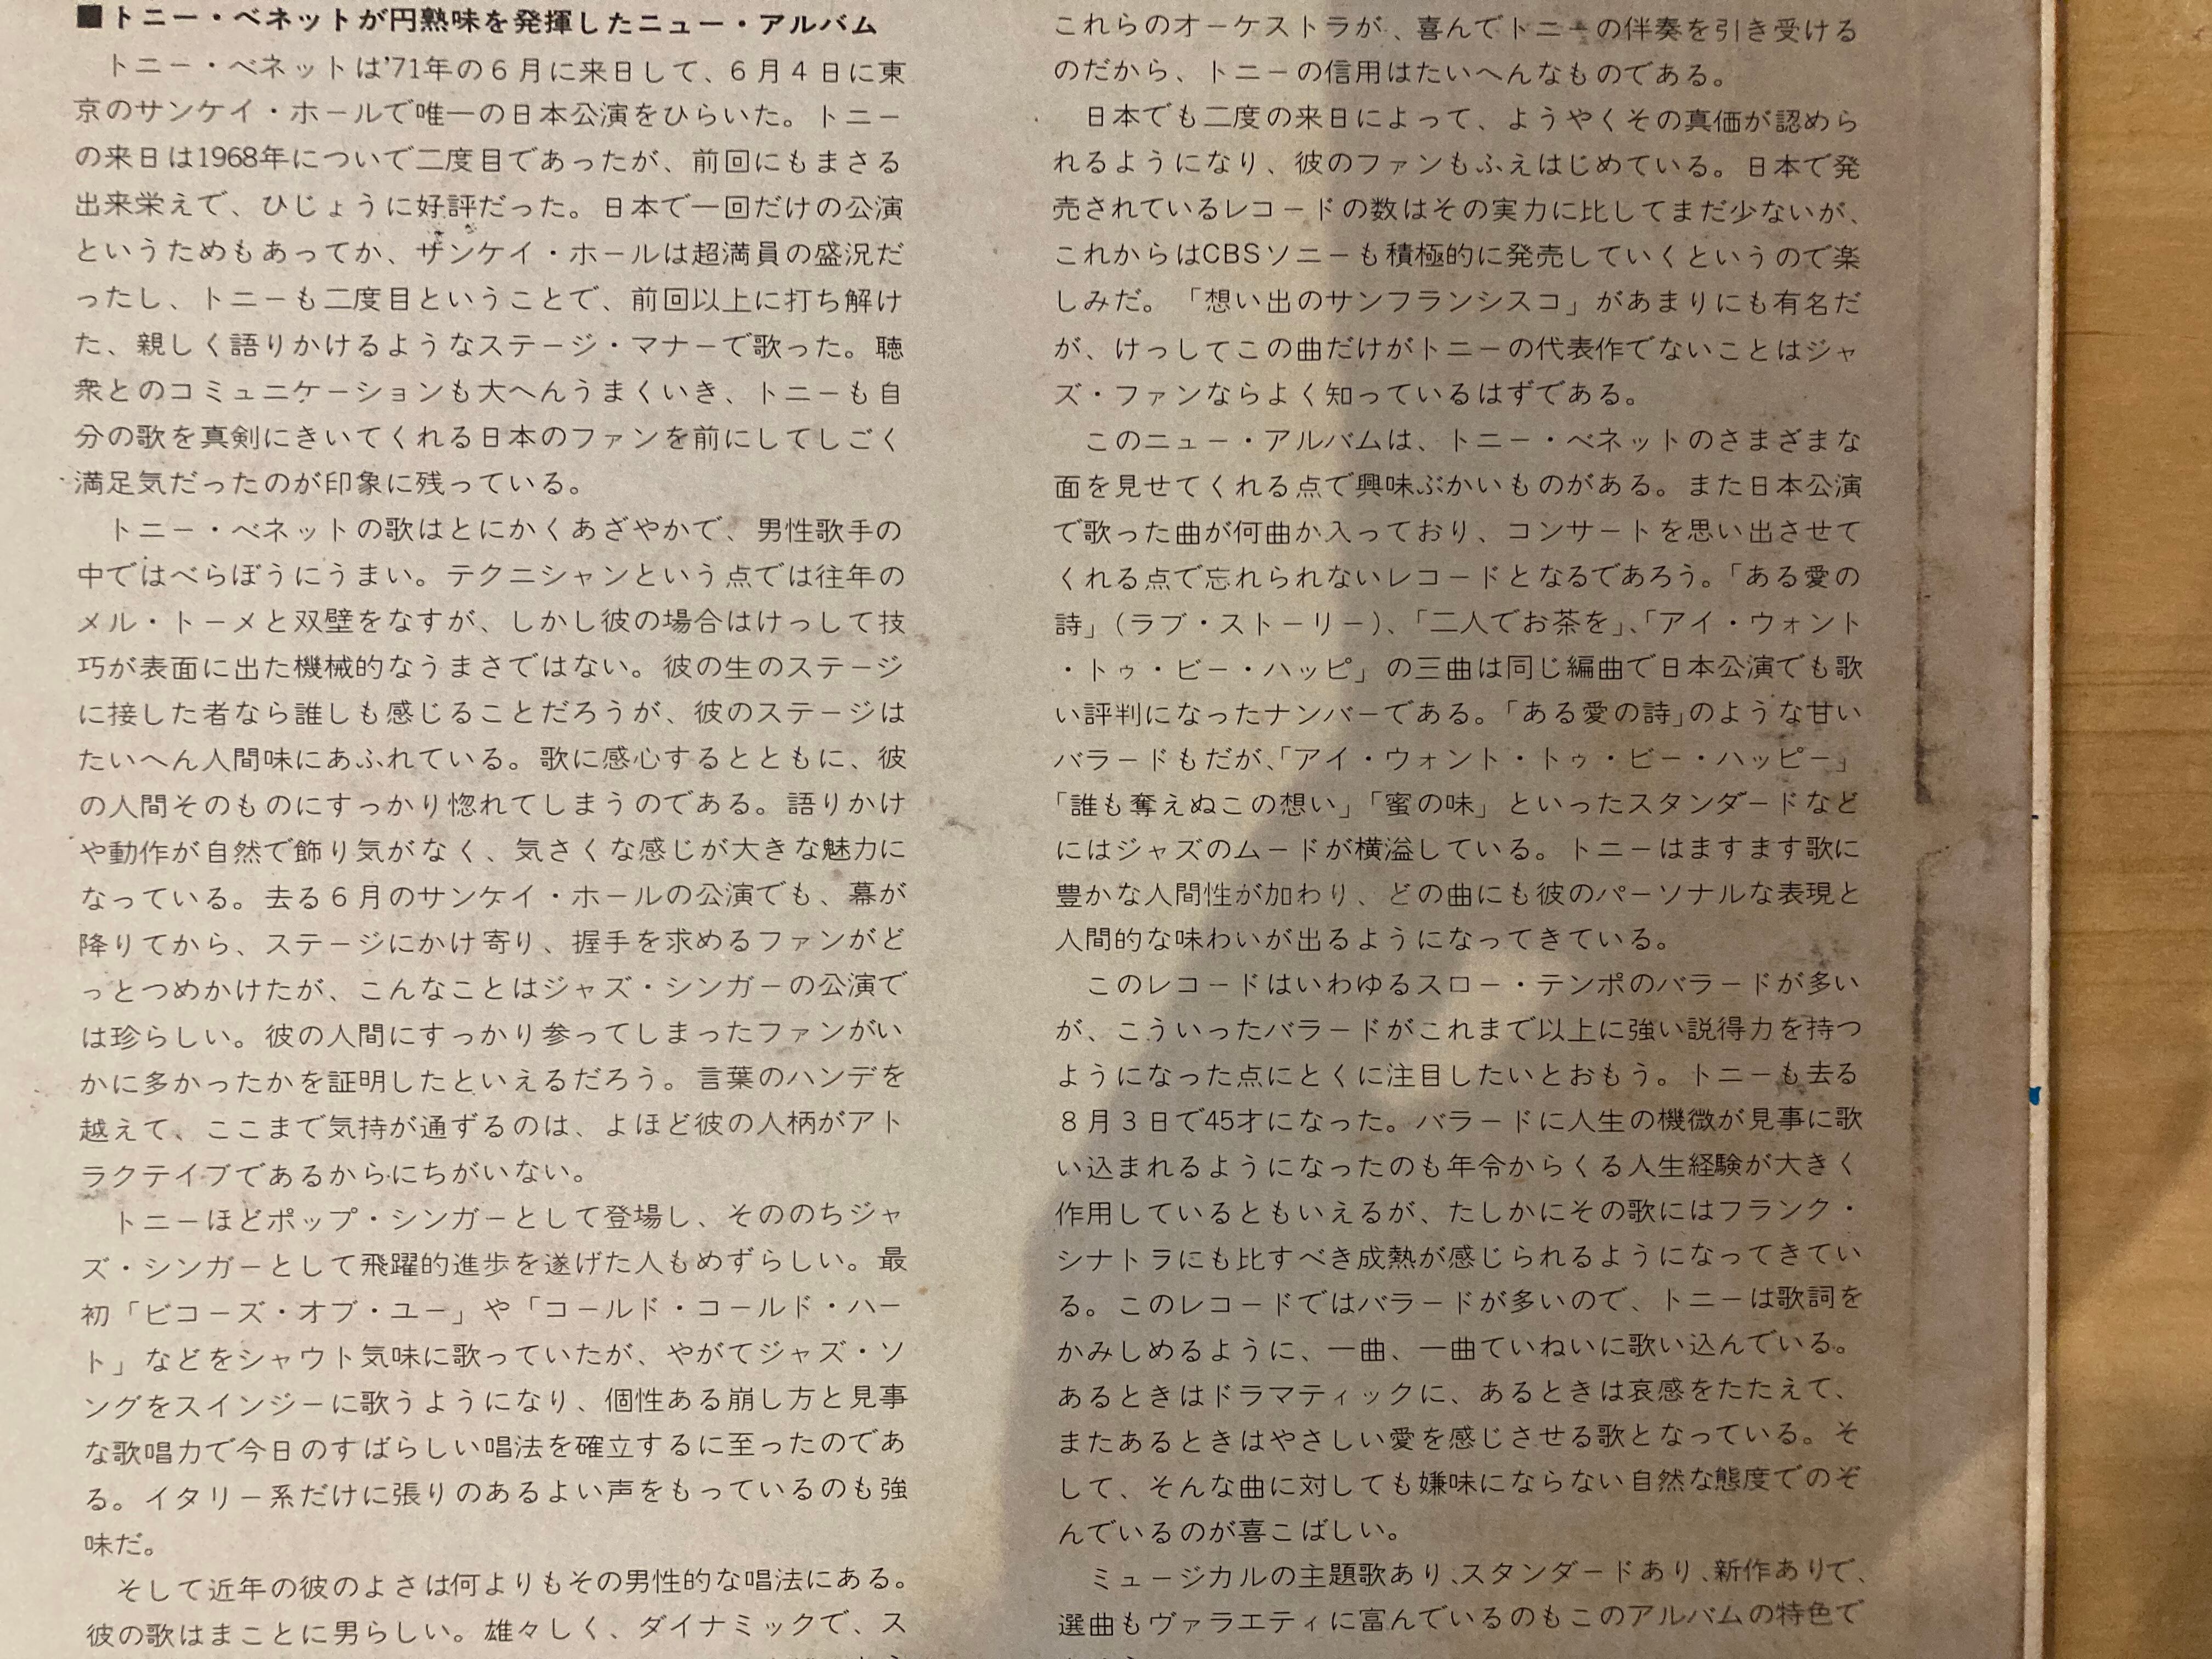 ■トニー・ベネットが円熟味を発揮したニュー・アルバム
トニー・ベネットは'71年の6月に来日して、6月4日に東
京のサンケイ・ホールで唯一の日本公演をひらいた。トニー
の来日は1968年についで二度目であったが、前回にもまさる
出来栄えで、ひじょうに好評だった。日本で一回だけの公演
というためもあってか、サンケイ・ホールは超満員の盛況だ
ったし、トニーも二度目ということで、前回以上に打ち解け
た、親しく語りかけるようなステージ・マナーで歌った。聴
衆とのコミュニケーションも大へんうまくいき、トニーも自
分の歌を真剣にきいてくれる日本のファンを前にしてしごく
満足気だったのが印象に残っている。
トニー・ベネットの歌はとにかくあざやかで、男性歌手の
中ではべらぼうにうまい。テクニシャンという点では往年の
メル・トーメと双壁をなすが、しかし彼の場合はけっして技
巧が表面に出た機械的なうまさではない。彼の生のステージ
に接した者なら誰しも感じることだろうが、彼のステージは
たいへん人間味にあふれている。歌に感心するとともに、彼
の人間そのものにすっかり惚れてしまうのである。語りかけ
や動作が自然で飾り気がなく、気さくな感じが大きな魅力に
なっている。去る6月のサンケイ・ホールの公演でも、幕が
降りてから、ステージにかけ寄り、握手を求めるファンがど
っとつめかけたが、こんなことはジャズ・シンガーの公演で
は珍らしい。彼の人間にすっかり参ってしまったファンがい
かに多かったかを証明したといえるだろう。言葉のハンデを
越えて、ここまで気持が通ずるのは、よほど彼の人柄がアト
ラクテイブであるからにちがいない。
トニーほどポップ・シンガーとして登場し、そののちジャ
ズ・シンガーとして飛躍的進歩を遂げた人もめずらしい。最
初「ビコーズ・オブ・ユー」や「コールド・コールド・ハー
ト」などをシャウト気味に歌っていたが、やがてジャズ・ソ
ングをスインジーに歌うようになり、個性ある崩し方と見事
な歌唱力で今日のすばらしい唱法を確立するに至ったのであ
る。イタリー系だけに張りのあるよい声をもっているのも強
味だ。
そして近年の彼のよさは何よりもその男性的な唱法にある。
彼の歌はまことに男らしい。雄々しく、ダイナミックで、ス
これらのオーケストラが、喜んでトニーの伴奏を引き受ける
のだから、トニーの信用はたいへんなものである。
日本でも二度の来日によって、ようやくその真価が認めら
れるようになり、彼のファンもふえはじめている。日本で発
売されているレコードの数はその実力に比してまだ少ないが、
これからはCBSソニーも積極的に発売していくというので楽
しみだ。「想い出のサンフランシスコ」があまりにも有名だ
が、けっしてこの曲だけがトニーの代表作でないことはジャ
ズ・ファンならよく知っているはずである。
このニュー・アルバムは、トニー・ベネットのさまざまな
面を見せてくれる点で興味ぶかいものがある。また日本公演
で歌った曲が何曲か入っており、コンサートを思い出させて
くれる点で忘れられないレコードとなるであろう。「ある愛の
詩」（ラブ・ストーリー）、「二人でお茶を」、「アイ・ウォント
・トゥ・ビー・ハッピ」の三曲は同じ編曲で日本公演でも歌
い評判になったナンバーである。「ある愛の詩」のような甘い
バラードもだが、「アイ・ウォント・トゥ・ビー・ハッピー」
「誰も奪えぬこの想い」「蜜の味」といったスタンダードなど
にはジャズのムードが横溢している。トニーはますます歌に
豊かな人間性が加わり、どの曲にも彼のパーソナルな表現と
人間的な味わいが出るようになってきている。
このレコードはいわゆるスロー・テンポのバラードが多い
が、こういったバラードがこれまで以上に強い説得力を持つ
ようになった点にとくに注目したいとおもう。トニーも去る
8月3日で45才になった。バラードに人生の機微が見事に歌
い込まれるようになったのも年令からくる人生経験が大きく
作用しているともいえるが、たしかにその歌にはフランク・
シナトラにも比すべき成熟が感じられるようになってきてい
る。このレコードではバラードが多いので、トニーは歌詞を
かみしめるように、一曲、一曲ていねいに歌い込んでいる。
あるときはドラマティックに、あるときは哀感をたたえて、
またあるときはやさしい愛を感じさせる歌となっている。そ
して、そんな曲に対しても嫌味にならない自然な態度でのぞ
んでいるのが喜こばしい。
ミュージカルの主題歌あり、スタンダードあり、新作ありで、
選曲もヴァラエティに富んでいるのもこのアルバムの特色で